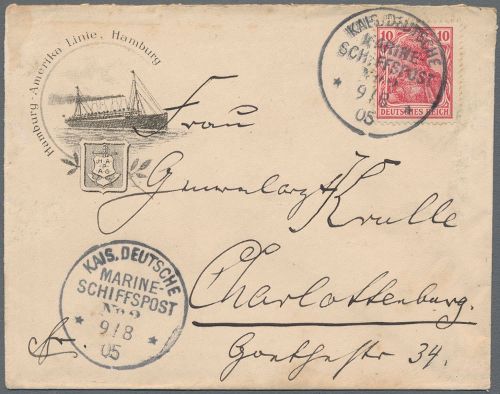 Hamburg-Amerika Linie, Hamburg
H.A.
P.
A.G.
10 10
DEUTSCHES REICH
KAIS. DEUTSCHE
MARINE-
SCHIFFSPOST
No 2
* 9/8 *
05
Frau
Generalarzt Krulle
Charlottenburg.
Goethestr 34.
KAIS. DEUTSCHE
MARINE-
SCHIFFSPOST
No 2
* 9/8 *
05
fr.